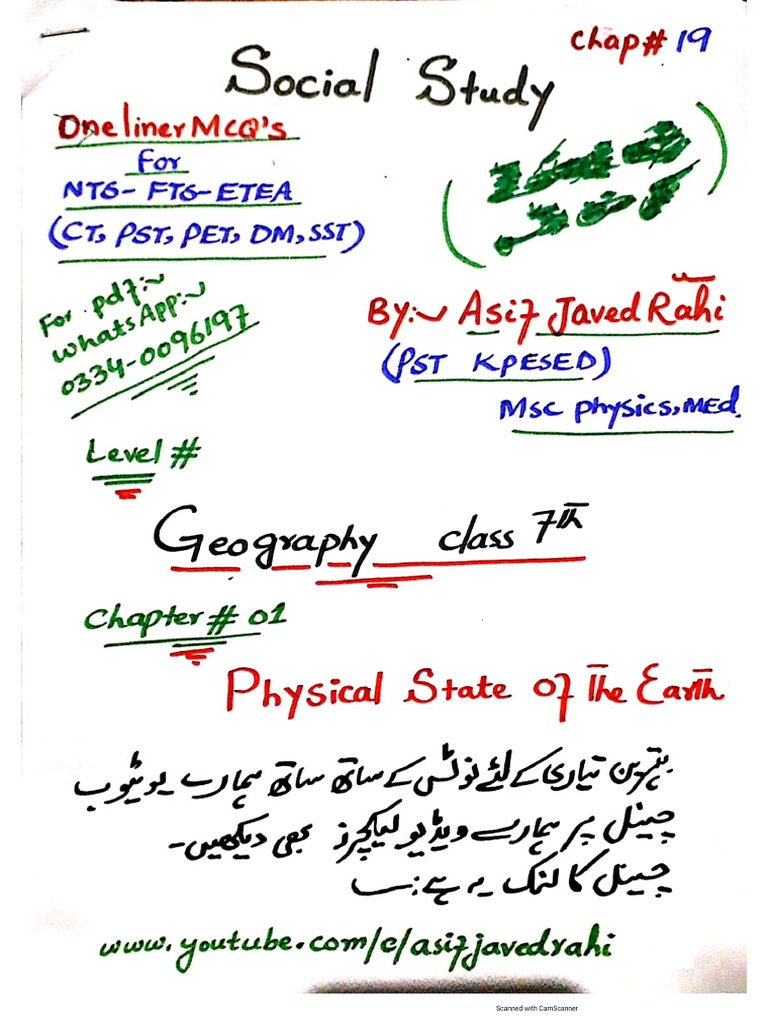 Chap# 19
Social Study
One liner MCQ's
For
NTS- FTS- ETEA
(CT, PST, PET, DM, SST)
For pdf:~
WhatsApp:~
0334-0096197
By:~ Asif Javed Rahi
(PST KPESED)
Msc Physics, MEd.
Level #
Geography class 7th
Chapter# 01
Physical State Of The Earth
بہترین تیاری کے لئے نوٹس کے ساتھ ساتھ ہمارے یوٹیوب
چینل پر ہمارے ویڈیو لیکچرز بھی دیکھیں۔
چینل کا لنک یہ ہے:
www.youtube.com/c/asifjavedrahi
Scanned with CamScanner